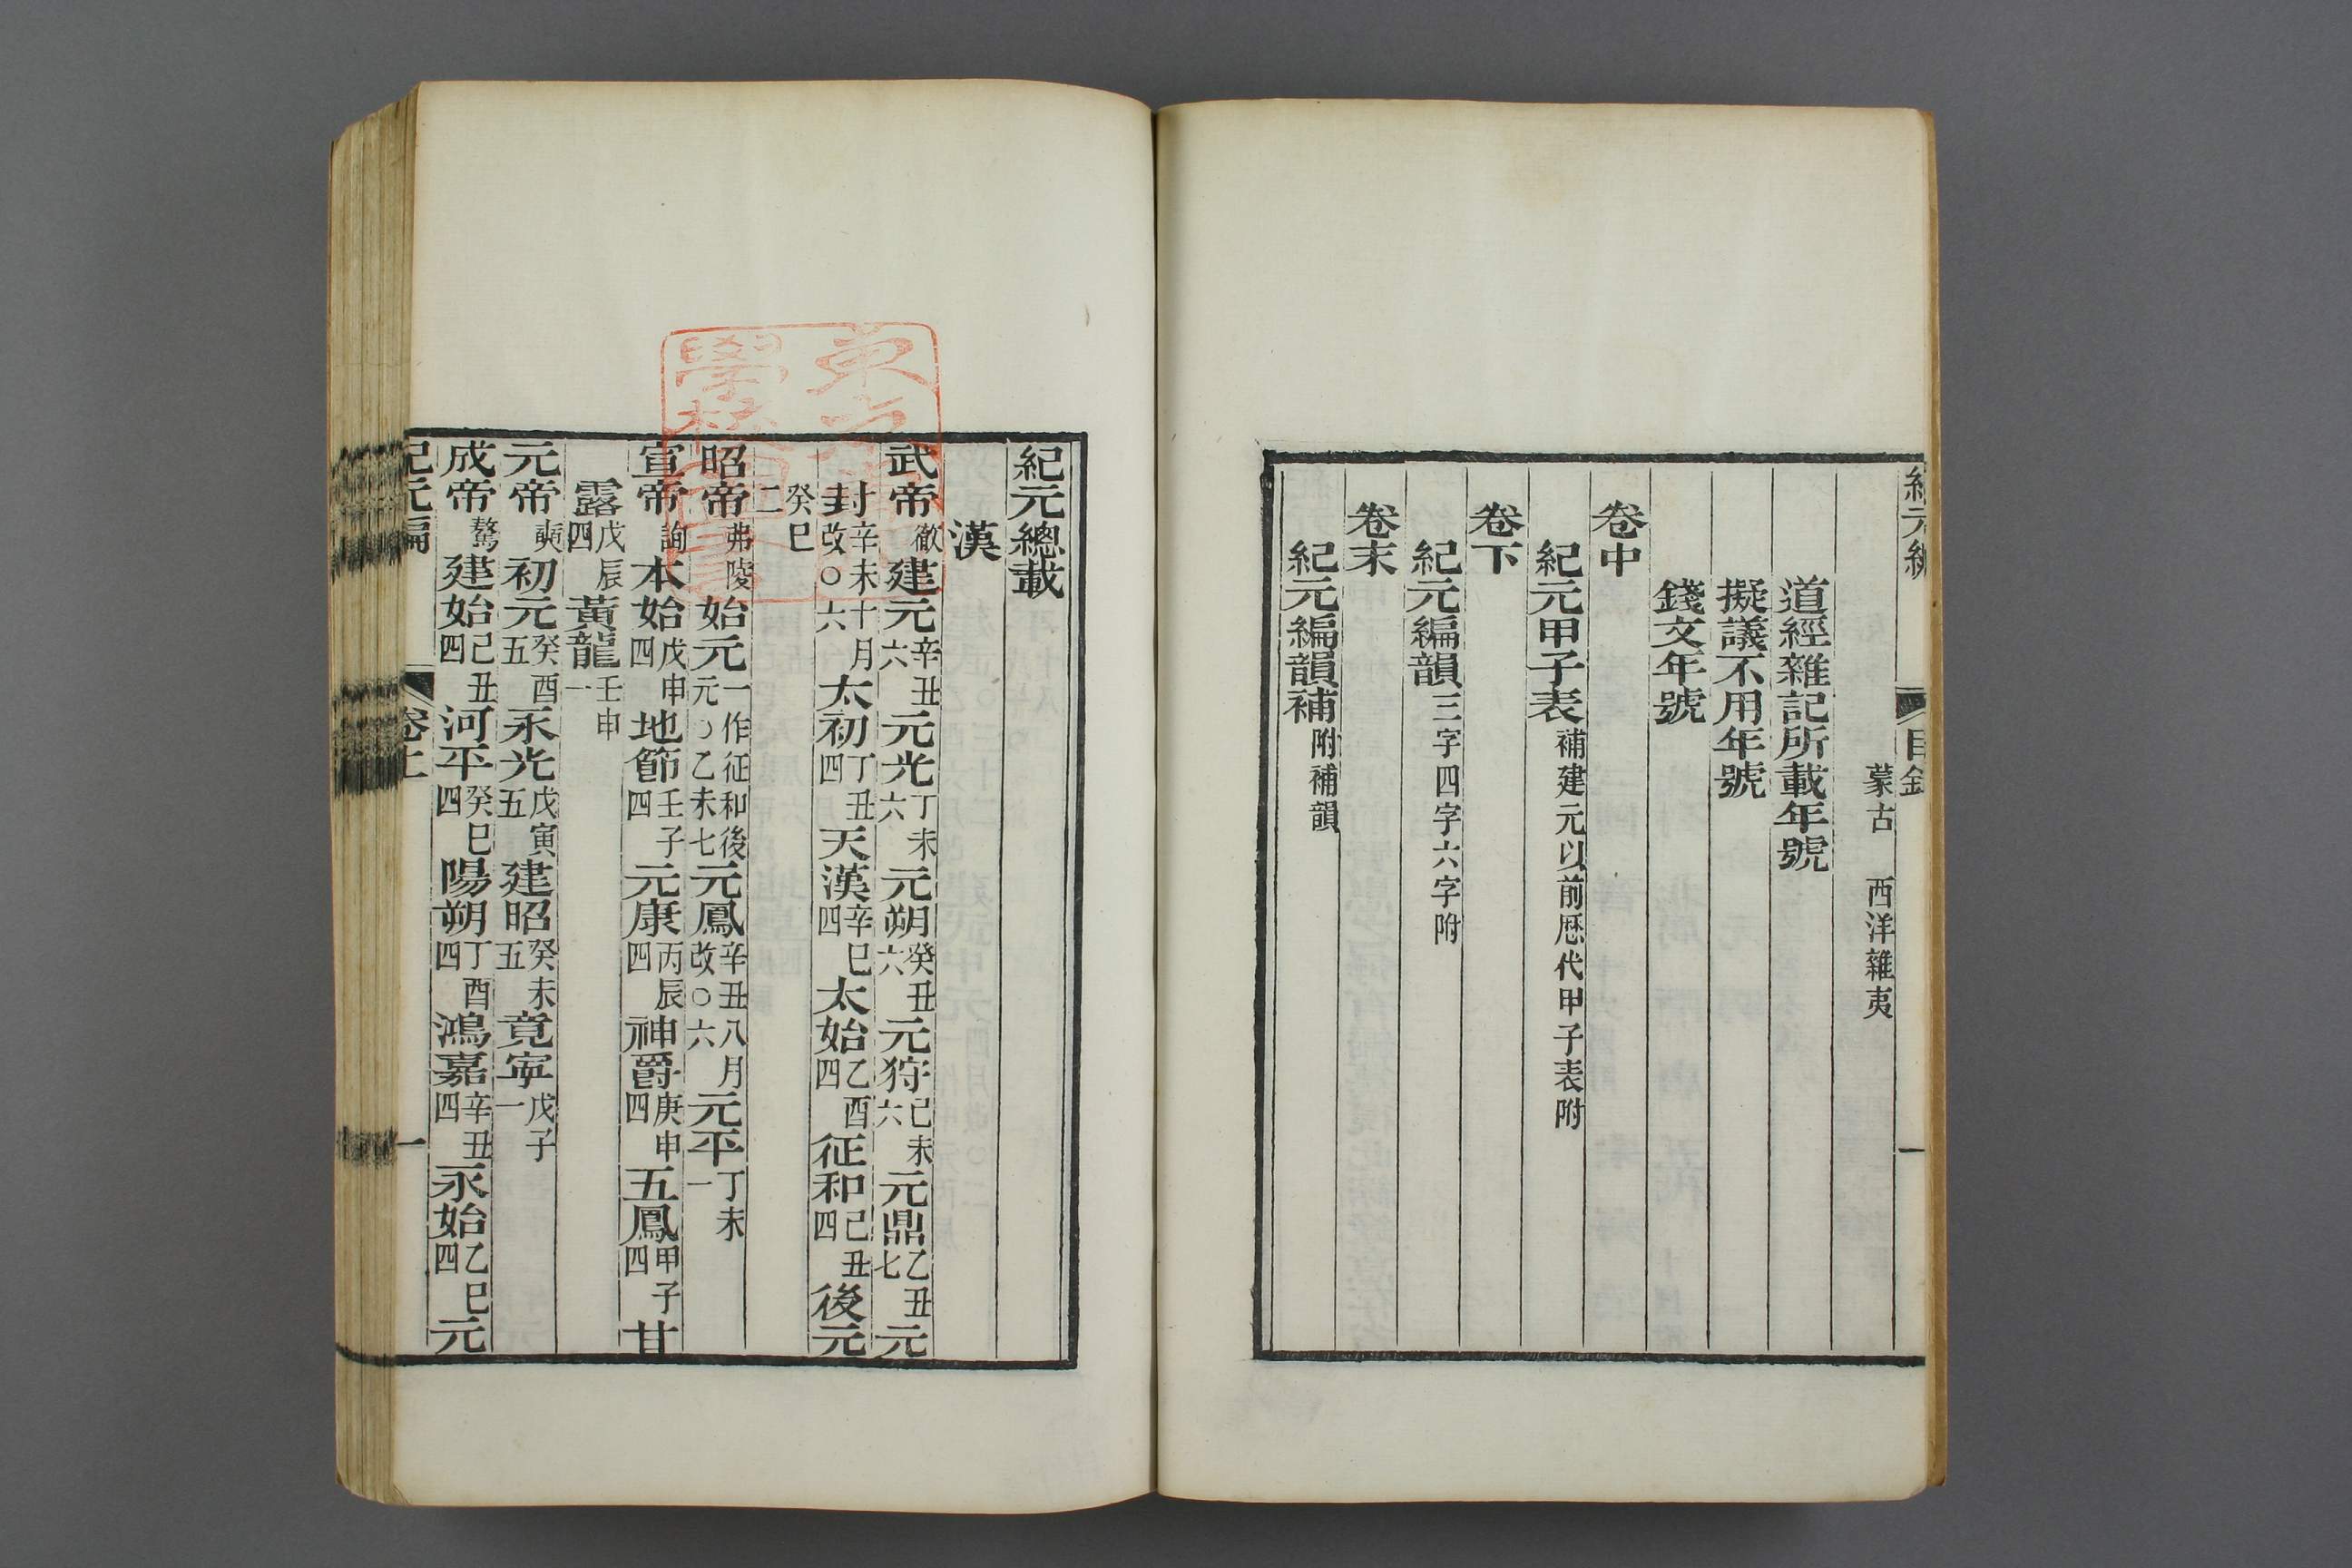 紀元編 目錄 一
蒙古 西洋雜夷
道經雜記所載年號
擬議不用年號
錢文年號
卷中
紀元甲子表補建元以前歷代甲子表附
卷下
紀元編韻三字四字六字附
卷末
紀元編韻補附補韻
紀元總載
漢
武帝徹建元辛丑六元光丁未六元朔癸丑六元狩己未六元鼎乙丑七元
封辛未十月改○六太初丁丑四天漢辛巳四太始乙酉四征和己丑四後元
癸巳二
昭帝弗陵始元一作征和後元○乙未七元鳳辛丑八月改○六元平丁未一
宣帝詢本始戊申四地節壬子四元康丙辰四神爵庚申四五鳳甲子四甘
露戊辰四黃龍壬申一
元帝奭初元癸酉五永光戊寅五建昭癸未五竟寧戊子一
成帝驁建始己丑四河平癸巳四陽朔丁酉四鴻嘉辛丑四永始乙巳四元
紀元編 卷上 一